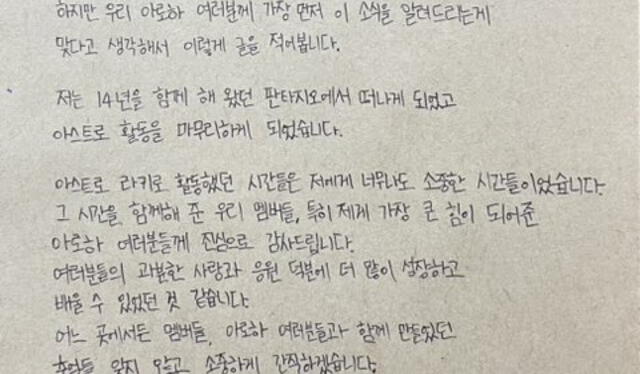 하지만 우리 아로하 여러분께 가장 먼저 이 소식을 알려드리는게
맞다고 생각해서 이렇게 글을 적어봅니다.
저는 14년을 함께 해 왔던 판타지오에서 떠나게 되었고
아스트로 활동을 마무리하게 되었습니다.
아스트로 라키로 활동했던 시간들은 저에게 너무나도 소중한 시간들이었습니다.
그 시간을 함께해 준 우리 멤버들, 특히 제게 가장 큰 힘이 되어준
아로하 여러분들께 진심으로 감사드립니다.
여러분들의 과분한 사랑과 응원 덕분에 더 많이 성장하고
배울 수 있었던 것 같습니다.
어느 곳에서든 멤버들, 아로하 여러분들과 함께 만들었던
추억들 잊지 않고 소중하게 간직하겠습니다.